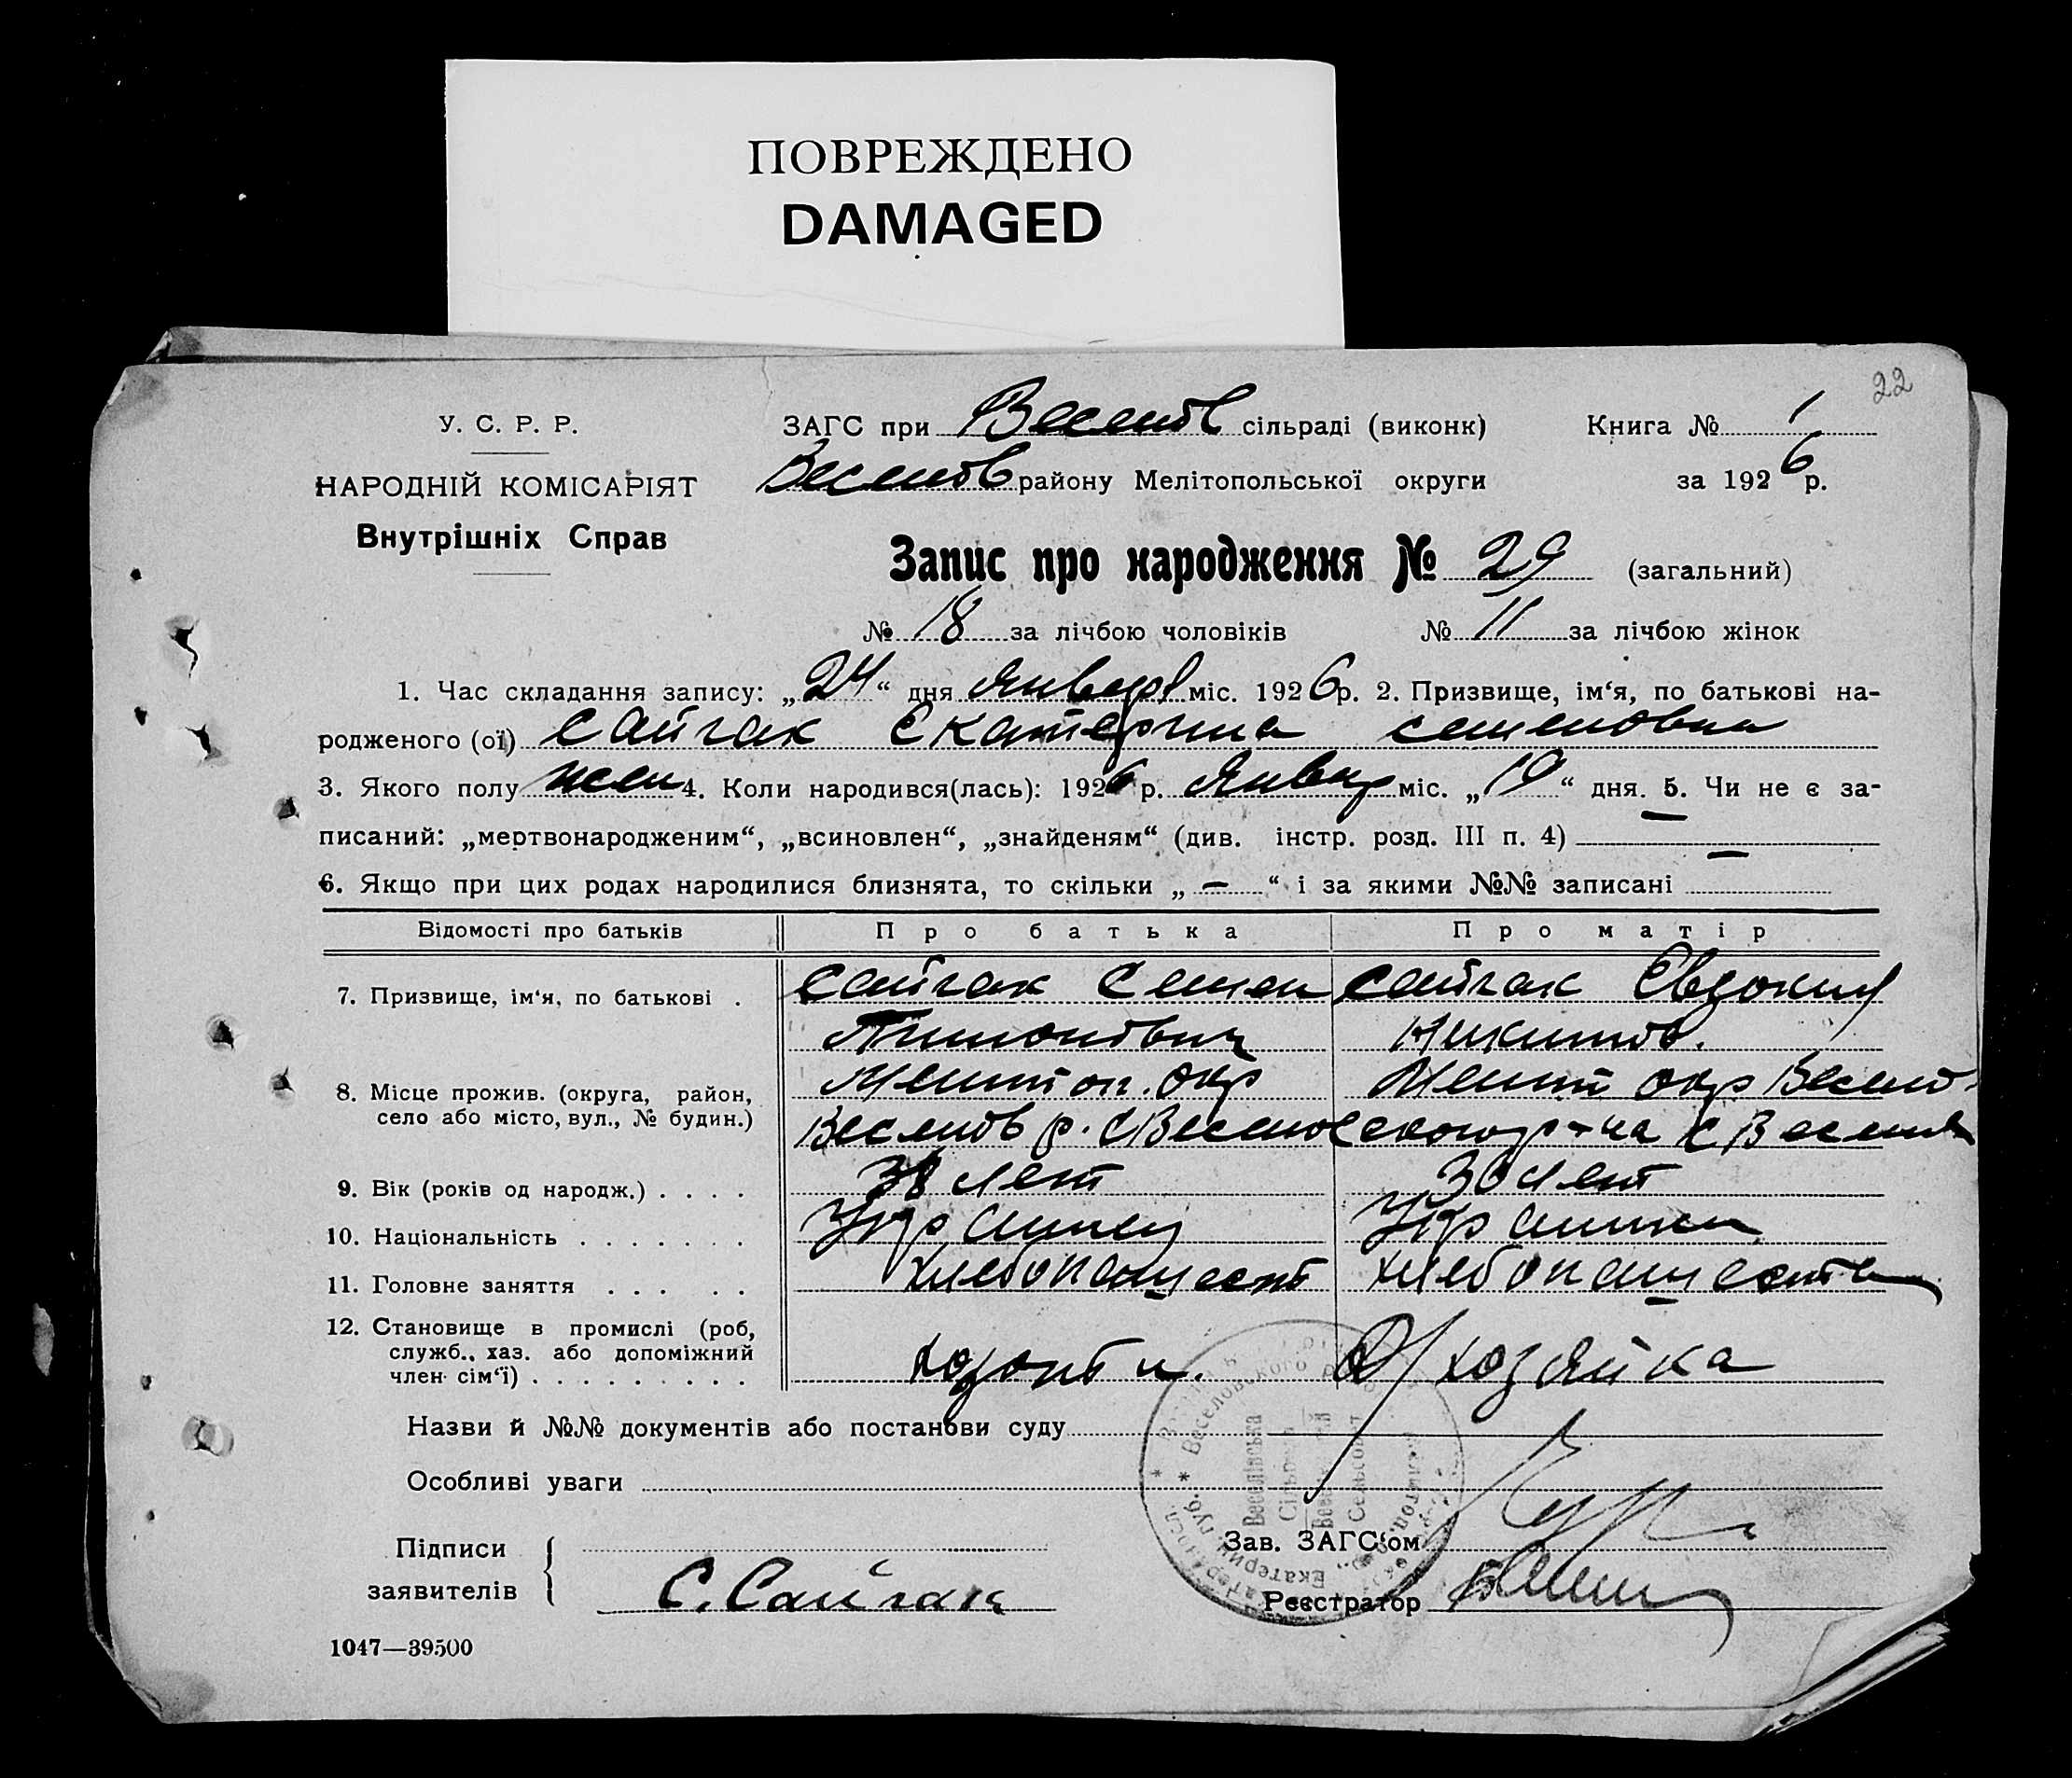 ПОВРЕЖДЕНО
DAMAGED
22
У. С. Р. Р.
НАРОДНІЙ КОМІСАРІЯТ
Внутрішніх Справ
ЗАГС при Веселов сільраді (виконк) Книга № 1
Веселов району Мелітопольської округи за 1926 р.
Запис про народження № 29 (загальний)
№ 18 за лічбою чоловіків № 11 за лічбою жінок
1. Час складання запису: „24“ дня Января міс. 1926 р. 2. Призвище, ім‘я, по батькові на-
родженого (ої) Сайгак Екатерина Семеновна
3. Якого полу жен 4. Коли народився(лась): 1926 р. Январ міс. „19“ дня. 5. Чи не є за-
писаний: „мертвонародженим“, „всиновлен“, „знайденям“ (див. інстр. розд. III п. 4) —
6. Якщо при цих родах народилися близнята, то скільки „ — “ і за якими №№ записані —
Відомості про батьків Про батька Про матір
7. Призвище, ім‘я, по батькові . Сайгак Семен Сайгак Евдокия
Никитов.
8. Місце прожив. (округа, район, Мелитоп. окр Мелит окр Весело-
село або місто, вул., № будин.) Веселов р. с Веселое с Веселое
9. Вік (років од народж.) . . . . лет 30 лет
10. Національність . . . . . . . Украинец Украинка
11. Головне заняття . . . . . хлебопашест хлебопашества
12. Становище в промислі (роб,
служб., хаз. або допоміжний
член сім‘ї) . . . . . . . . . Д/хозяйка
Назви й №№ документів або постанови суду
Особливі уваги
Підписи
заявителів С. Сайгак
Зав. ЗАГС‘ом
Реєстратор
Веселовского
Веселівська
Сільрада
Сельсовет
Екатерин. губ.
1047—39500